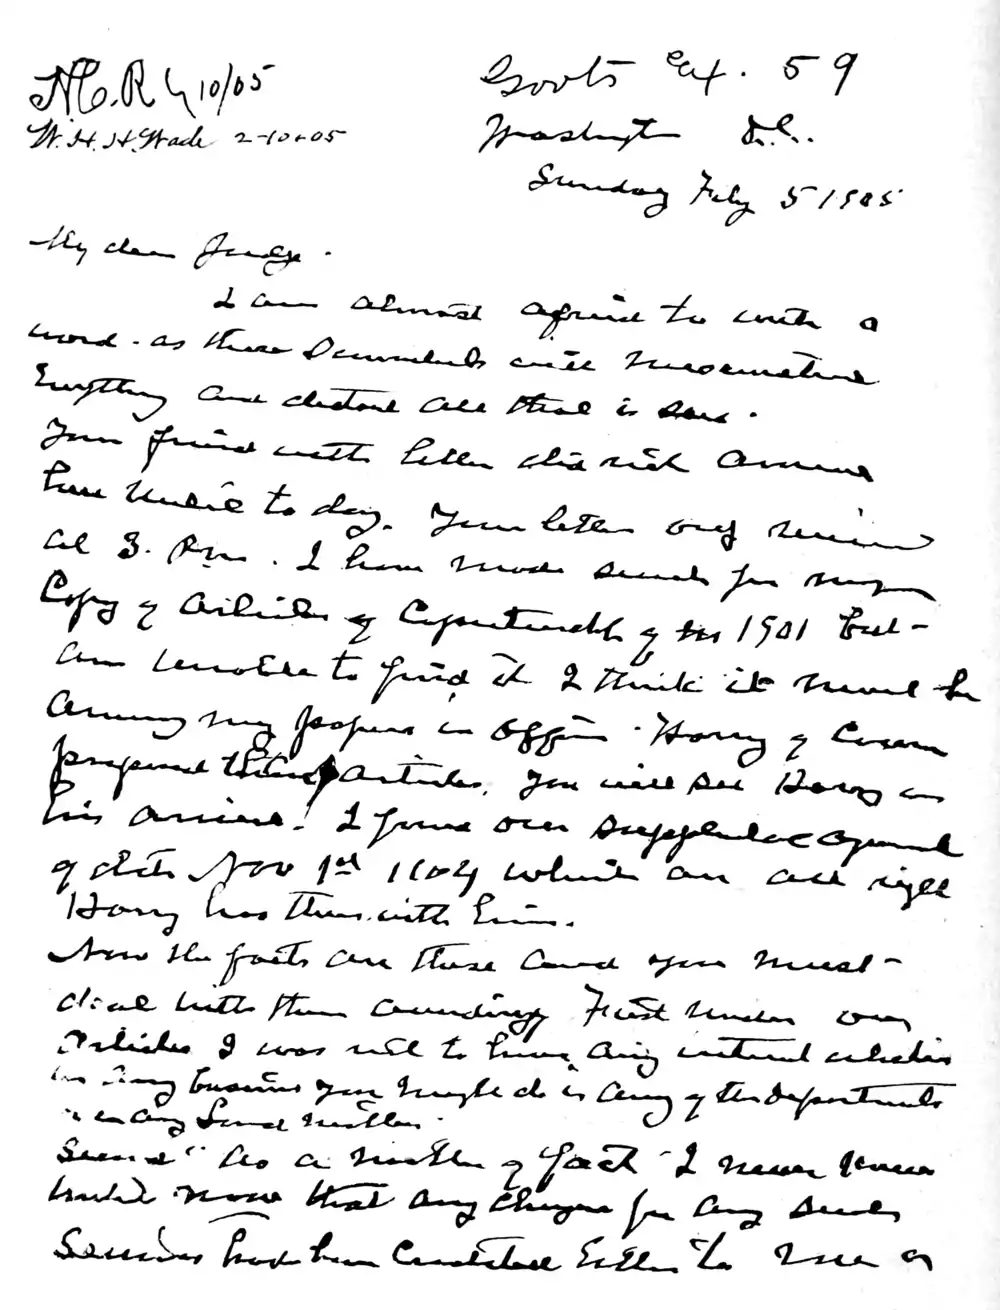 Govts Ex. 59
H.C.R. 2/10/05
W.H.H. Wade 2-10-05
Washington D.C.
Sunday Feby 5 1905
My dear Judge.
I am almost afraid to write a
word - as these Scoundrels will misconstrue
Everything and distort all that is said.
Your friend with letter did not arrive
here until to day. Your letter only received
at 3. Pm. I have made search for my
Copy of Articles of Copartnership of 1901 but -
am unable to find it I think it must be
among my papers in office. Harry of course
prepared these articles. You will see Harry on
his arrival! I found our supplemental agreement
of date Nov 1st 1904 which are all right
Harry has them with him.
Now the facts are these and you must -
deal with them accordingly First under our
Articles I was not to have any interest whatever
in any business you might do in any of the Departments
or in any Land matters.
Second" As a matter of fact I never knew
until now that any charges for any such
Services had been credited either to me or